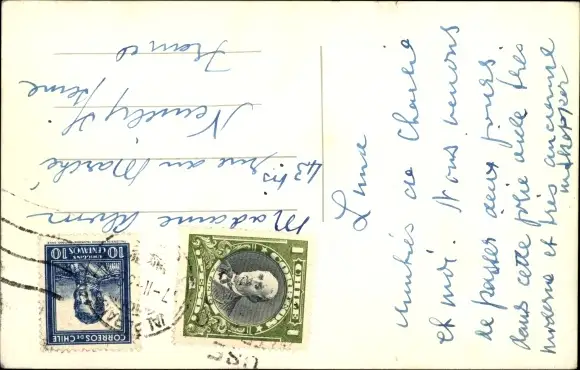 Lima
Amitiés de Charlie
et moi. Nous venons
de passer deux jours
dans cette jolie ville très
moderne et très ancienne
Madame
43 bis rue du Marché
Neuilly s/ Seine
France
CORREOS DE CHILE
10 CENTAVOS 10
1 CHILE 1